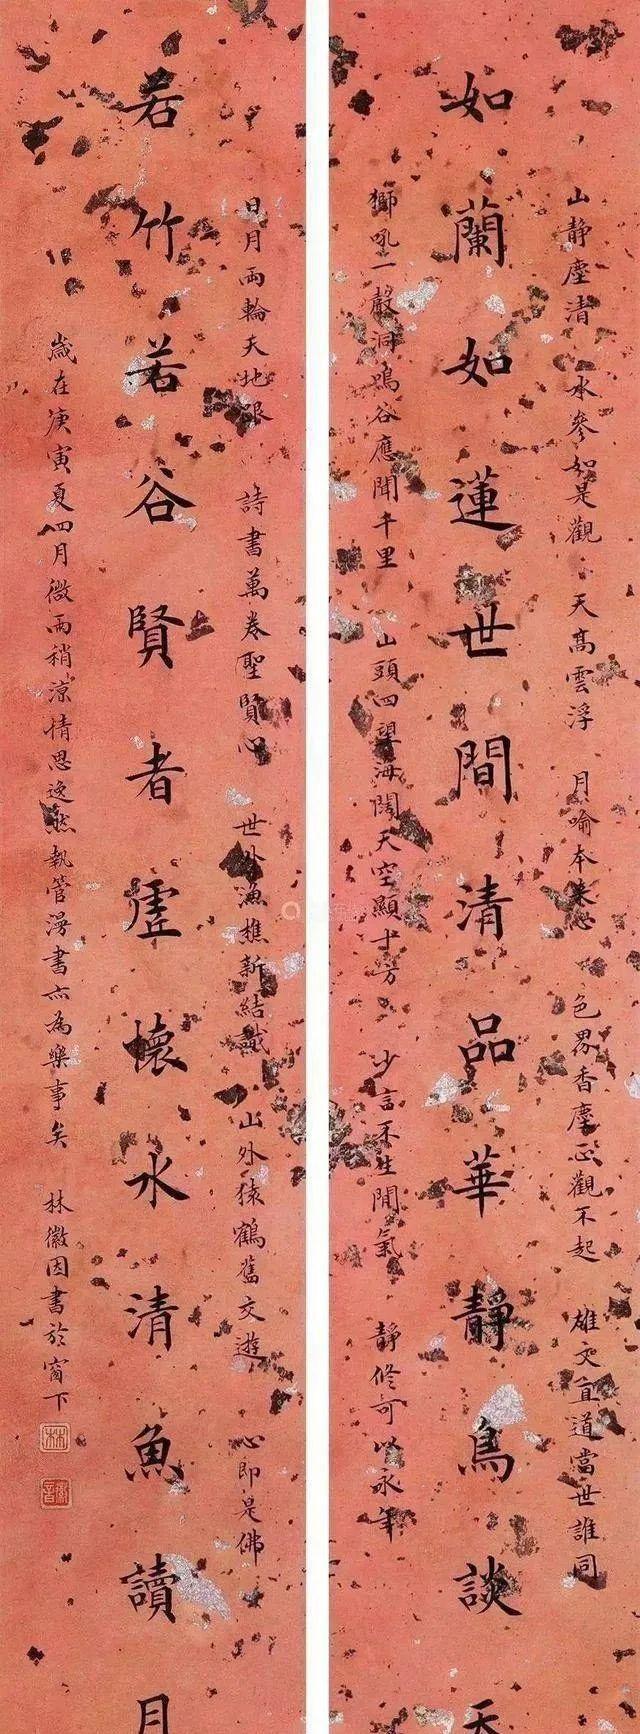 山靜塵清 水參如是觀 天高雲浮 月喻本來心 色界香塵正觀不起 雄文直道當世誰同
如蘭如蓮世間清品華靜鳥談天
獅吼一聲洞鳴谷應聞千里 山頭四望海闊天空顯十方 少言不生閒氣 靜修可以永年
日月兩輪天地眼 詩書萬卷聖賢心 世外漁樵新結識 山外猿鶴舊交遊 心即是佛
若竹若谷賢者虛懷水清魚讀月
歲在庚寅夏四月微雨稍涼情思逸然執管漫書亦為樂事矣 林徽因書於窗下
林